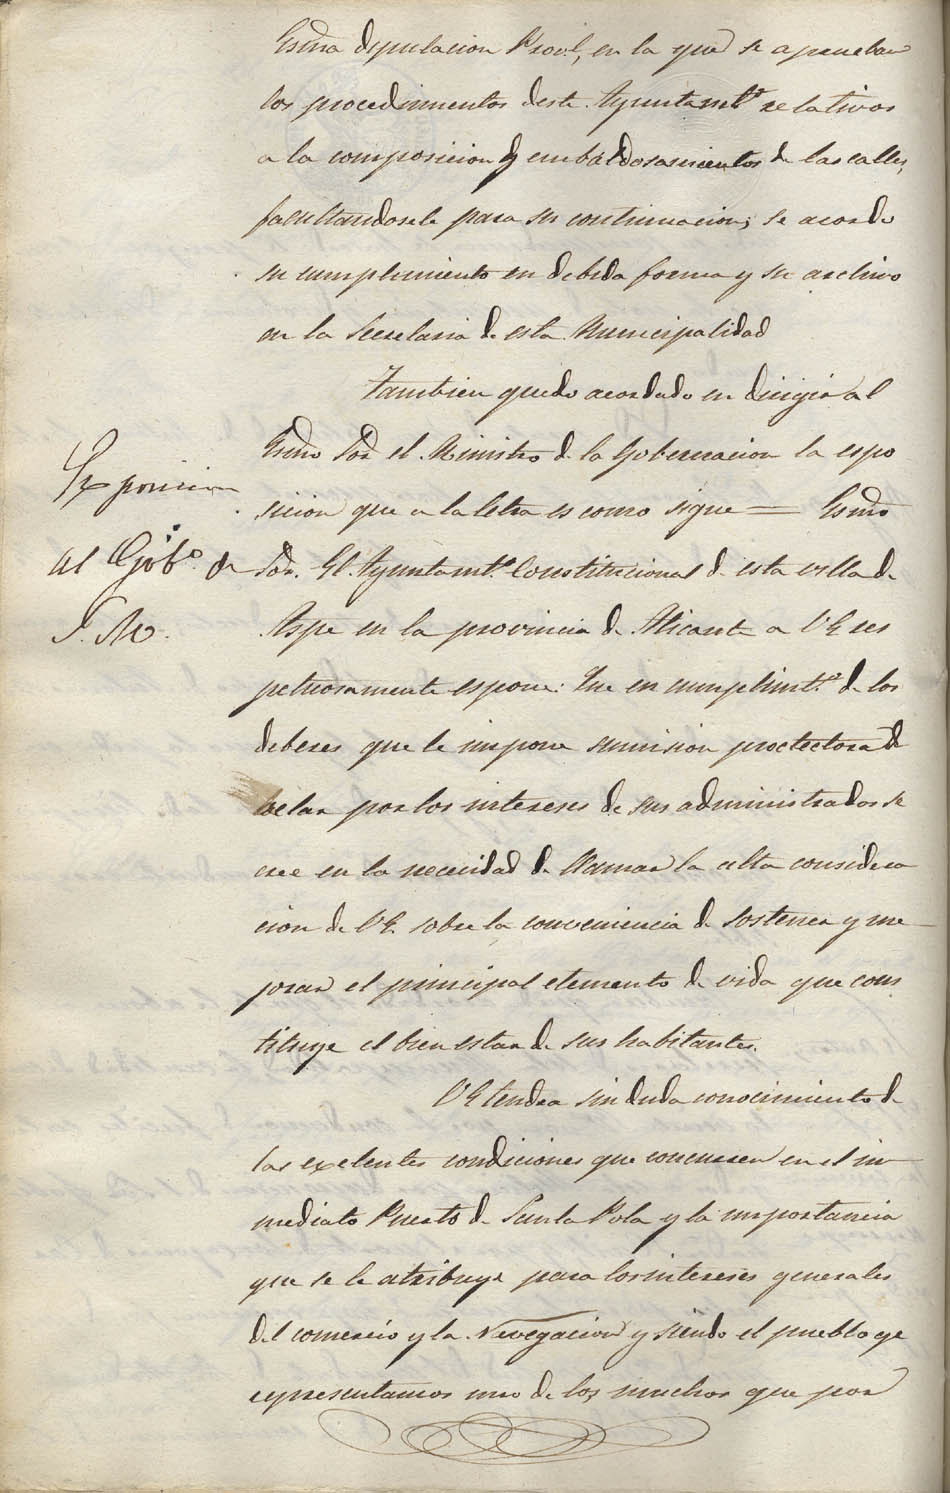 Esma diputacion Provl, en la que se aprueban
los procedimientos deste Ayuntamto relativos
a la composicion y embaldosasimientos de las calles,
facultandosele para su continuacion; se acordo
su cumplimiento en debida forma y su archivo
en la Secretaria de esta Municipalidad
Tambien quedo acordado en dirigir al
Esmo Sor el Ministro de la Gobernacion la espo
sicion que a la letra es como sigue — Esmo
Sor. El Ayuntamto Constitucional de esta villa de
Aspe en la provincia de Alicante a V E res
petuosamente espone: Que en cumplimto de los
deberes que le impone sumision proctectora de
velar por los intereses de sus administrados se
cree en la necesidad de llamar la alta considera
cion de V E. sobre la conveniencia de sostener y me
jorar el principal elemento de vida que cons
tituye el bien estar de sus habitantes.
V E tendra sin duda conocimiento de
las exelentes condiciones que concurren en el in
mediato Puerto de Santa Pola y la importancia
que se le atribuye para los intereses generales
del comercio y la Nevegacion y siendo el pueblo qe
representamos uno de los muchos que por
Exposicion
al Gobo. de
S. M.